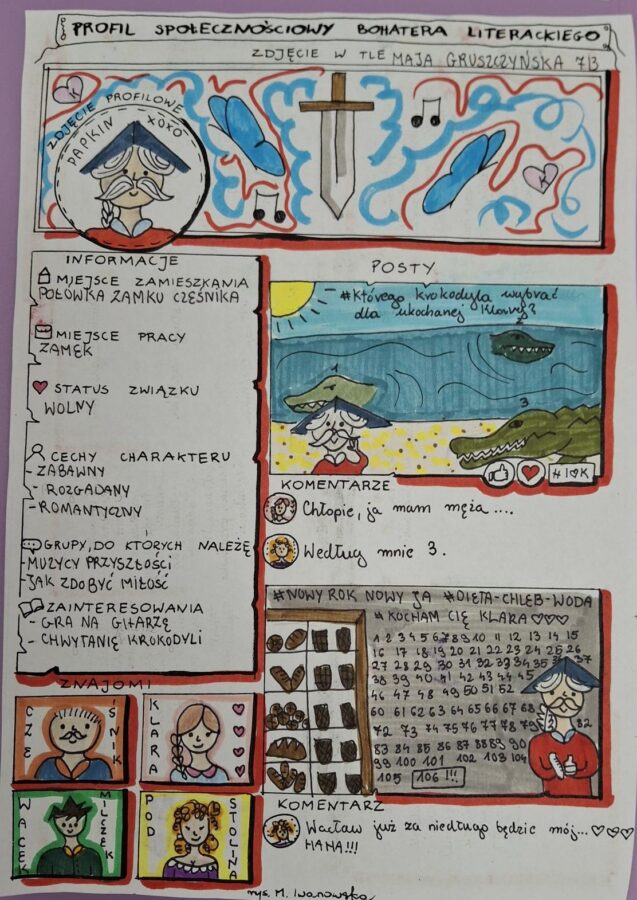 PROFIL SPOŁECZNOŚCIOWY BOHATERA LITERACKIEGO
ZDJĘCIE W TLE MAJA GRUSZCZYŃSKA 7B
ZDJĘCIE PROFILOWE
PAPKIN XOXO
K
K
INFORMACJE
MIEJSCE ZAMIESZKANIA
POŁÓWKA ZAMKU CZEŚNIKA
MIEJSCE PRACY
ZAMEK
STATUS ZWIĄZKU
WOLNY
CECHY CHARAKTERU
- ZABAWNY
- ROZGADANY
- ROMANTYCZNY
GRUPY, DO KTÓRYCH NALEŻĘ
- MUZYCY PRZYSZŁOŚCI
- JAK ZDOBYĆ MIŁOŚĆ
ZAINTERESOWANIA
- GRA NA GITARZE
- CHWYTANIE KROKODYLI
ZNAJOMI
CZEŚNIK
KLARA
WACEK MILCZEK
PODSTOLINA
POSTY
#Którego krokodyla wybrać
dla ukochanej Klary?
1
2
3
#I♥K
KOMENTARZE
Chłopie, ja mam męża ....
Według mnie 3.
#NOWY ROK NOWY JA #DIETA-CHLEB-WODA
#KOCHAM CIĘ KLARA ♡♡♡
1 2 3 4 5 6 7 8 9 10 11 12 13 14 15
16 17 18 19 20 21 22 23 24 25 26
27 28 29 30 31 32 33 34 35 36 37
38 39 40 41 42 43 44 45
46 47 48 49 50 51 52
60 61 62 63 64 65 66 67 68
72 73 74 75 76 77 78 79 82
83 84 85 86 87 88 89 90
99 100 101 102 103 104
105 106 !!!
KOMENTARZ
Wacław już za niedługo będzie mój... ♡♡♡
HAHA!!!
rys. M. Iwanowska